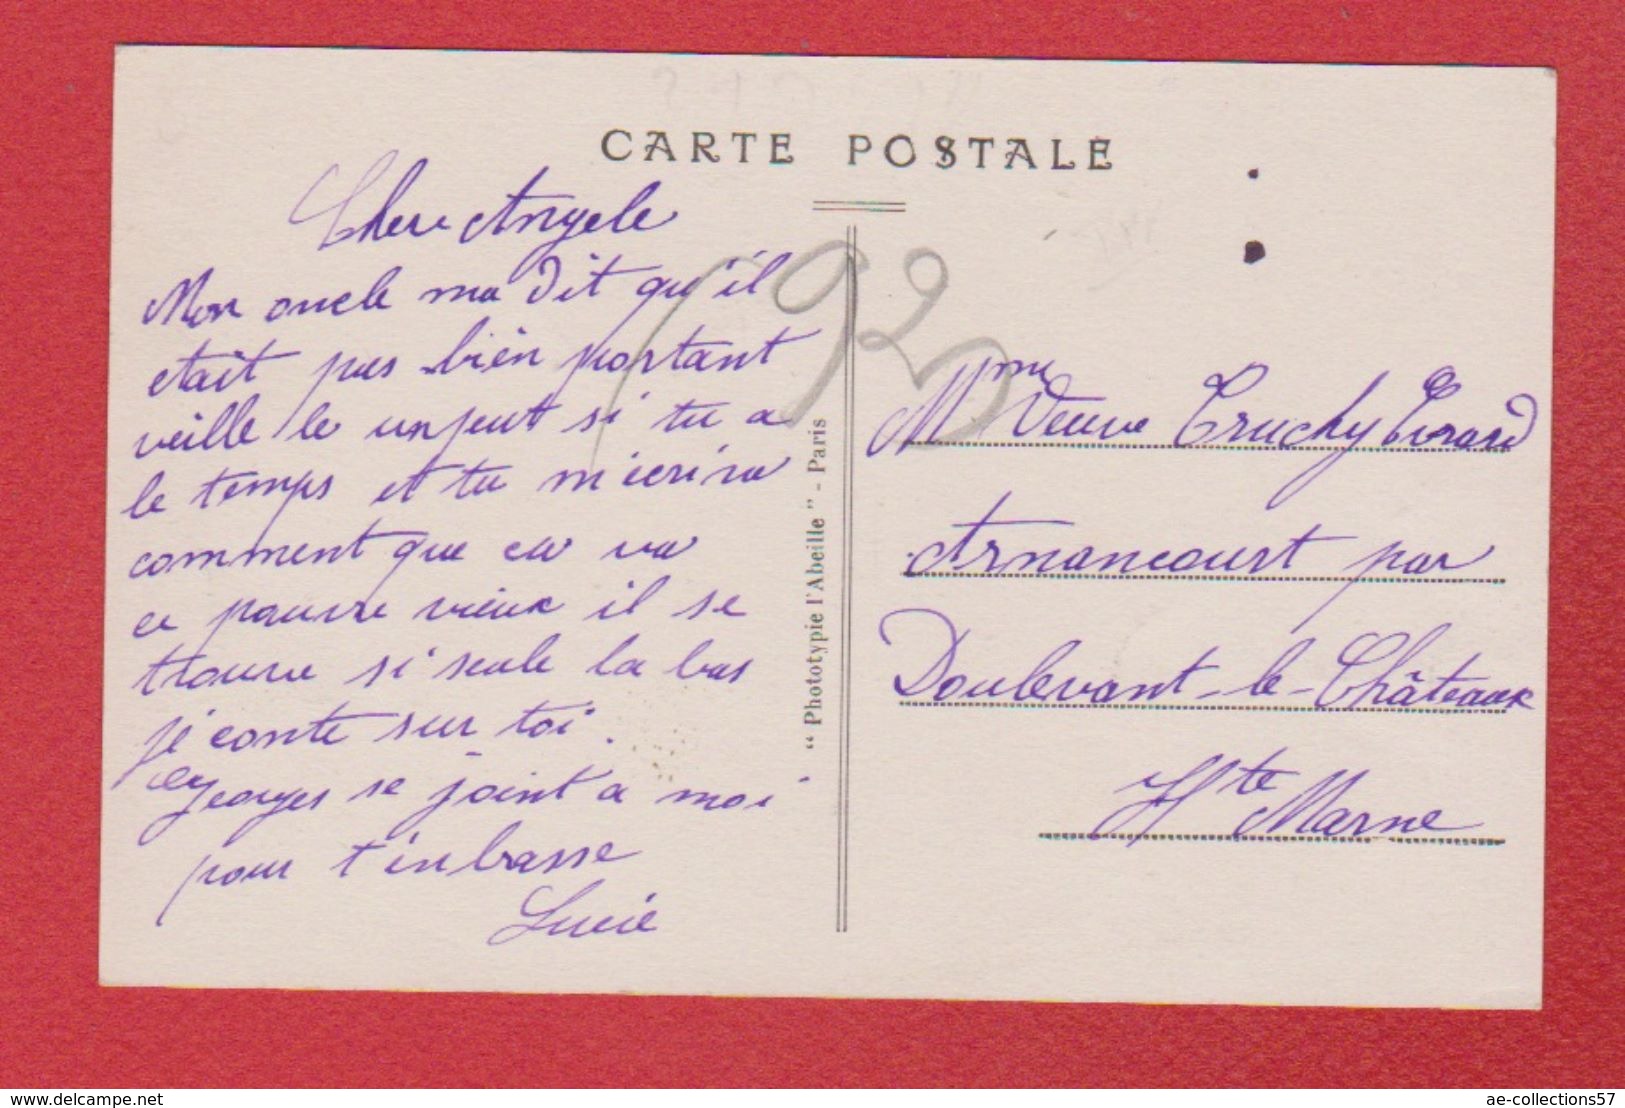 CARTE POSTALE
Chere Angele
Mon oncle ma dit qu'il
etait pas bien portant
veille le un peut si tu a
le temps et tu m'ecrira
comment que ca va
ce pauvre vieux il se
trouve si seule la bas
je conte sur toi.
Georges se joint a moi
pour t'inbrasse
Lucie
"Phototypie l'Abeille" - Paris
(92)
Mme Veuve Truchy
Arnancourt par
Doulevant-le-Châteaux
Hte Marne
www.delcampe.net
ae-collections57